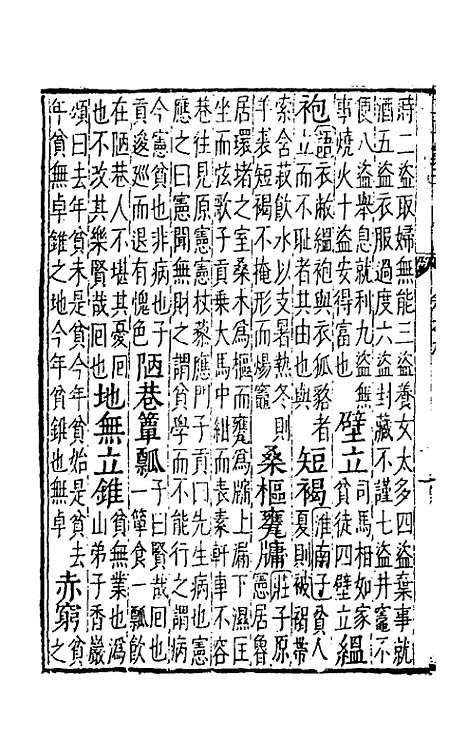 蒔二盜取婦無能三盜養女太多四盜棄事就
酒五盜衣服過度六盜封藏不謹七盜井竈不
便八盜舉息就利九盜無事燒火十盜安得富也 壁立 司馬相如家貧徒四壁立 縕
袍 語衣敝縕袍與衣狐貉者立而不恥者其由也與 短褐 淮南子貧人夏則被褐帶
索含菽飲水以支暑熱冬則羊裘短褐不掩形而煬竈 桑樞甕牖 莊子原憲居魯
居環堵之室桑木爲樞而甕爲牖上漏下濕匡
坐而弦歌子貢乘大馬中紺而表素軒車不容
巷往見原憲憲杖藜應門子貢曰先生病也憲
應之曰憲聞無財之謂貧學而不能行之謂病
今憲貧也非病也子貢逡巡而退有愧色 陋巷簞瓢 子曰賢哉回也一簞食一瓢飲
在陋巷人不堪其憂回也不改其樂賢哉回也 地無立錐 貧無業也溈山弟子香嚴
頌曰去年貧未是貧今年貧始是貧去年貧無卓錐之地今年貧錐也無卓 赤窮 貧之